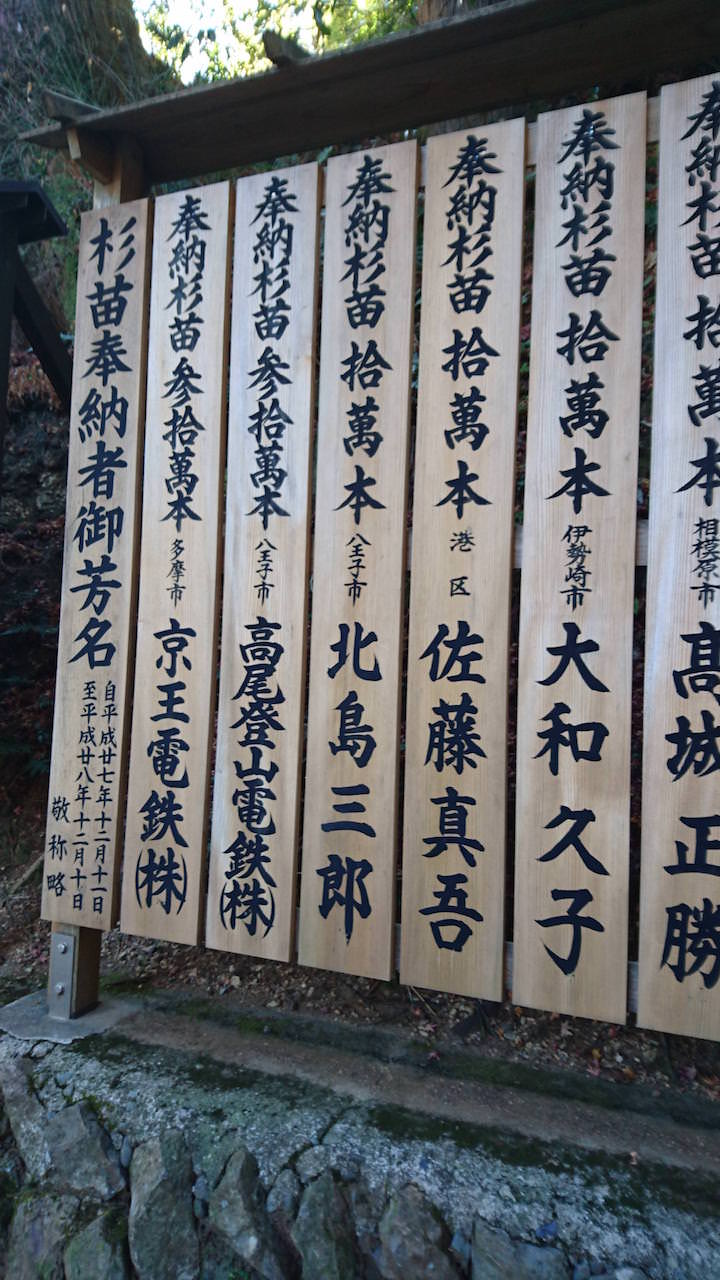 杉苗奉納者御芳名
自平成廿七年十二月十一日
至平成廿八年十二月十日
敬称略
奉納杉苗参拾萬本
多摩市
京王電鉄(株)
奉納杉苗参拾萬本
八王子市
高尾登山電鉄(株)
奉納杉苗拾萬本
八王子市
北島三郎
奉納杉苗拾萬本
港区
佐藤真吾
奉納杉苗拾萬本
伊勢崎市
大和久子
奉納杉苗拾萬本
相模原市
髙城正勝